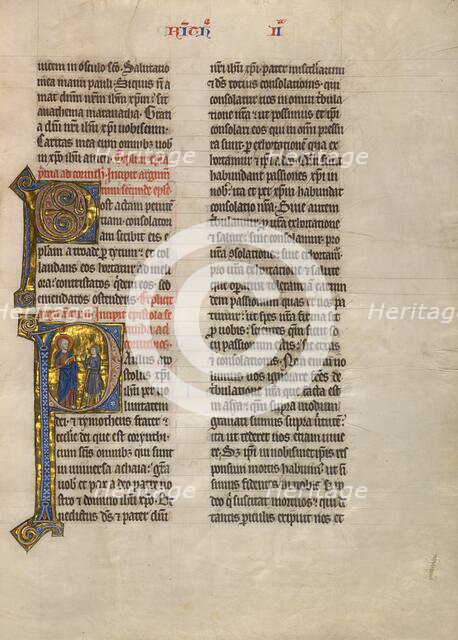 RICH II
uicem in osculo sco. Salutatio
nica manu pauli. Siquis n a
mat dnm nrm ihm xpm: sit
anathema maranatha. Grati
a dni nri ihu uobiscum.
Caritas mea cum omnib uob
in xpo ihu amen.
Post actam peniten
tiam consolatori
am scribit eis e
plam a troade p tytum: et col
laudans eos hortatur ad me
liora: contristatos qidem s; e
mendatos ostendens. Explicit
Incipit epistola se
cunda ad
Paulus apo
stolus xpi
ihu per uo
luntatem
dei: et tymotheus frater:
ecclesie dei que est corinthi:
cum scis omnib qui sunt
in uniuersa achaia: gra
uob et pax a deo patre no
stro et domino ihu xpo. Be
nedictus ds et pater dni
nri ihu xpi: pater misericdiarum
et ds totius consolationis: qui
consolatur nos in omni tribula
tione nra: ut possimus et ipsi
consolari eos qui in omni pressu
ra sunt: p exhortationem qua ex
hortamur et ipsi a deo. Qm sicut
habundant passiones xpi in
nob: ita et per xpm habundat
consolatio nra. Siue autem
tribulamur: p ura exhortatione
et salute: siue consolamur: pro
ura consolatione: siue exhortamur
pro ura exhortatione et salute
dem passionum quas et nos pa
timur: ut spes nra firma sit
p uobis: scientes qm sicut socii
passionum estis: sic eritis
et consolationis. Non enim uo
lumus uos ignorare fres de
tribulatione nra que facta est
in asya: qm supra modum
grauati sumus supra uirtute:
ita ut tederet nos etiam uiue
re. S; ipsi in nobismetipsis res
ponsum mortis habuim: ut n
simus fidentes in nobis s; in
deo q suscitat mortuos: qui de
tantis periculis eripuit nos et
Heritage
Images